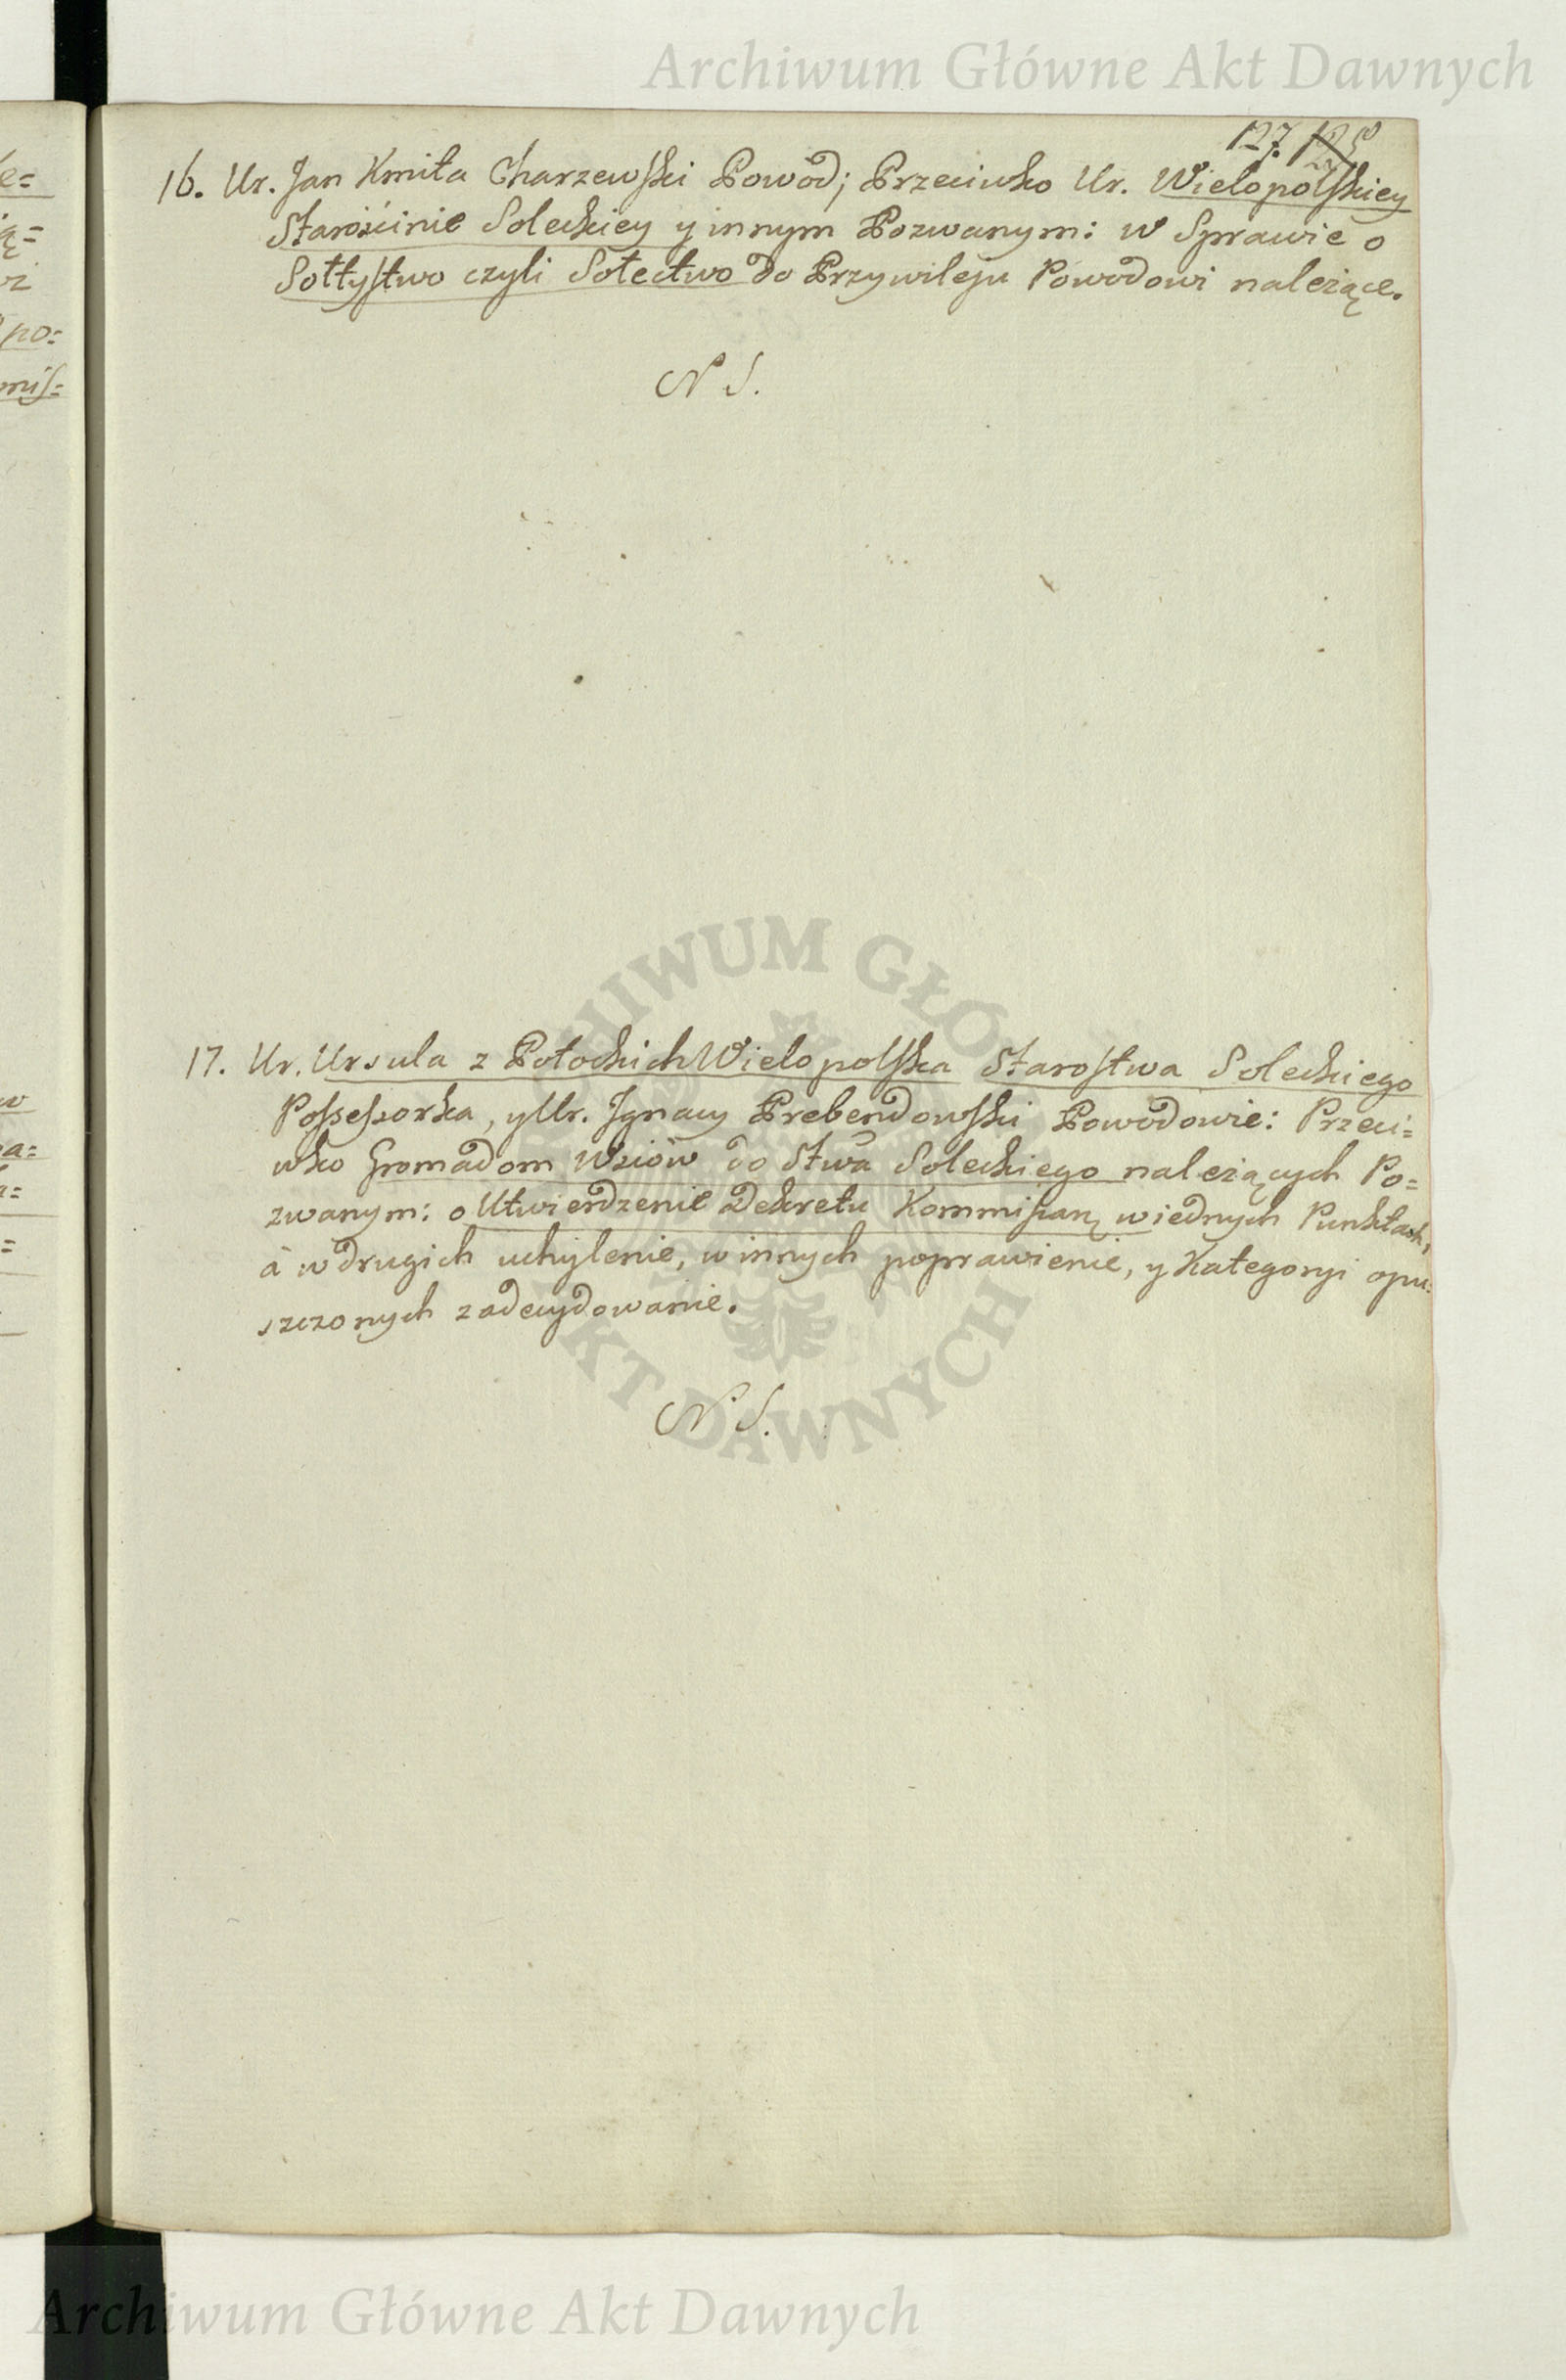 Archiwum Główne Akt Dawnych
127.
16. Ur. Jan Kmita Charzewski Powod; Przeciwko Ur. Wielopolskiey
Starościnie Soleckiey y innym Pozwanym: w Sprawie o
Sołtystwo czyli Sołectwo do Przywileju Powodowi należące.
N S.
17. Ur. Ursula z Potockich Wielopolska Starostwa Soleckiego
Possessorka, y Ur. Jgnacy Prebendowski Powodowie: Przeci=
wko Gromadom Wsiów do Stwa Soleckiego należących Po=
zwanym: o Utwierdzenie Dekretu w iednych Punktach,
à w drugich uchylenie, w innych poprawienie, y Kategoryi opu=
szczonych zadecydowanie.
N S.
ARCHIWUM GŁÓWNE AKT DAWNYCH
Archiwum Główne Akt Dawnych